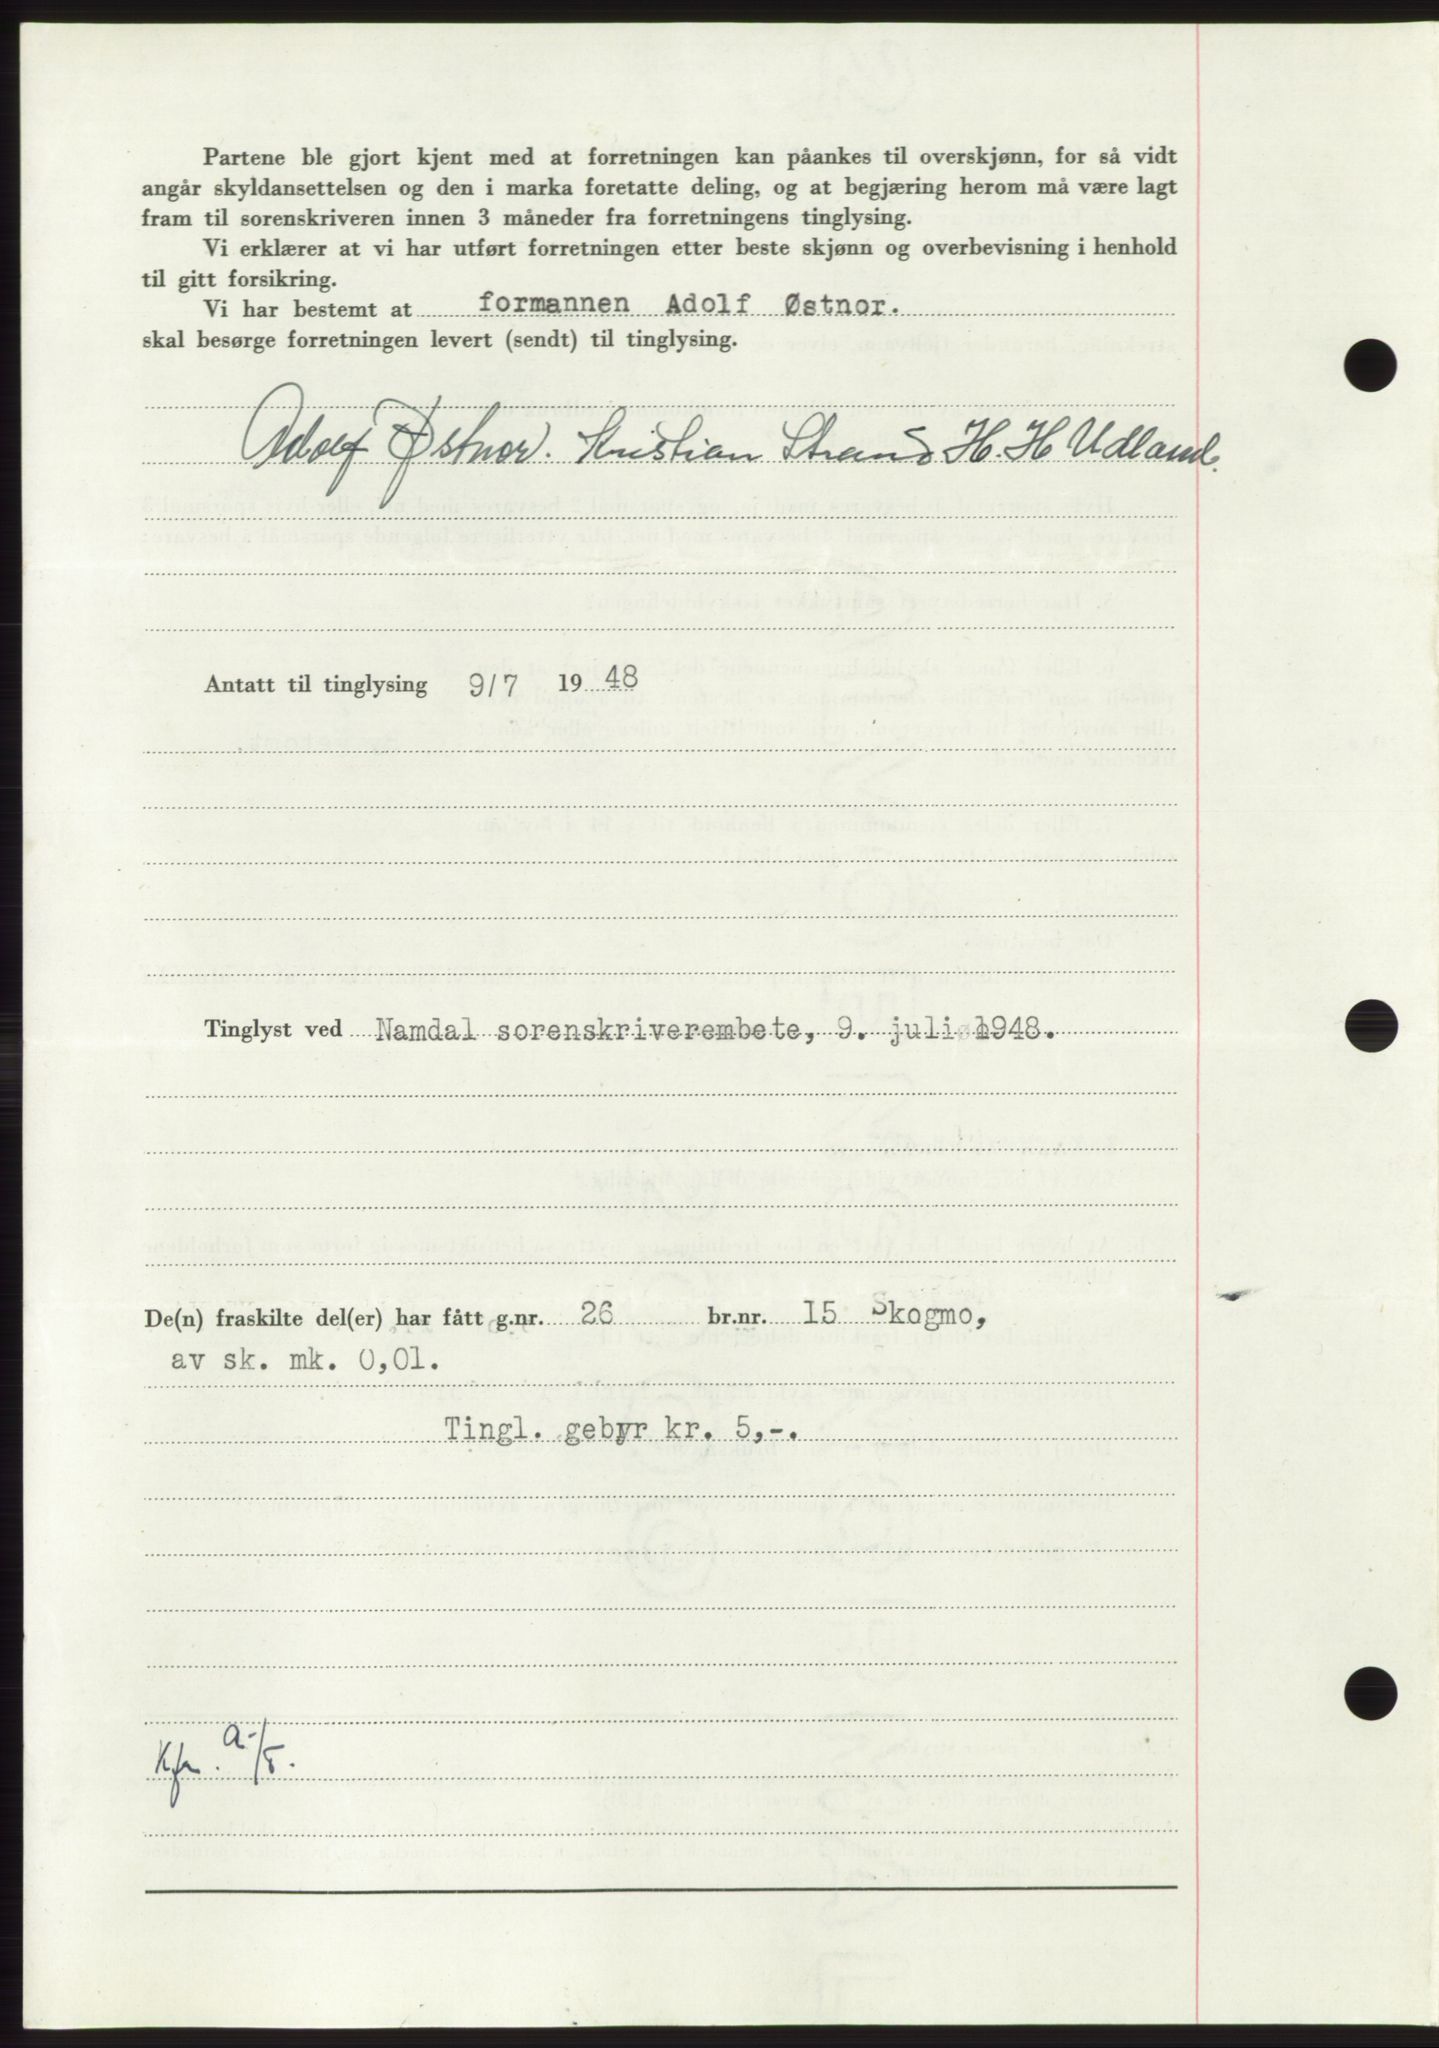 Partene ble gjort kjent med at forretningen kan påankes til overskjønn, for så vidt
angår skyldansettelsen og den i marka foretatte deling, og at begjæring herom må være lagt
fram til sorenskriveren innen 3 måneder fra forretningens tinglysing.
Vi erklærer at vi har utført forretningen etter beste skjønn og overbevisning i henhold
til gitt forsikring.
Vi har bestemt at formannen Adolf Østnor.
skal besørge forretningen levert (sendt) til tinglysing.
Adolf Østnor. Kristian Strand H. H Udland.
Antatt til tinglysing 9/7 1948
Tinglyst ved Namdal sorenskriverembete, 9. juli 1948.
De(n) fraskilte del(er) har fått g.nr. 26 br.nr. 15 Skogmo,
av sk. mk. 0,01.
Tingl. gebyr kr. 5,-.